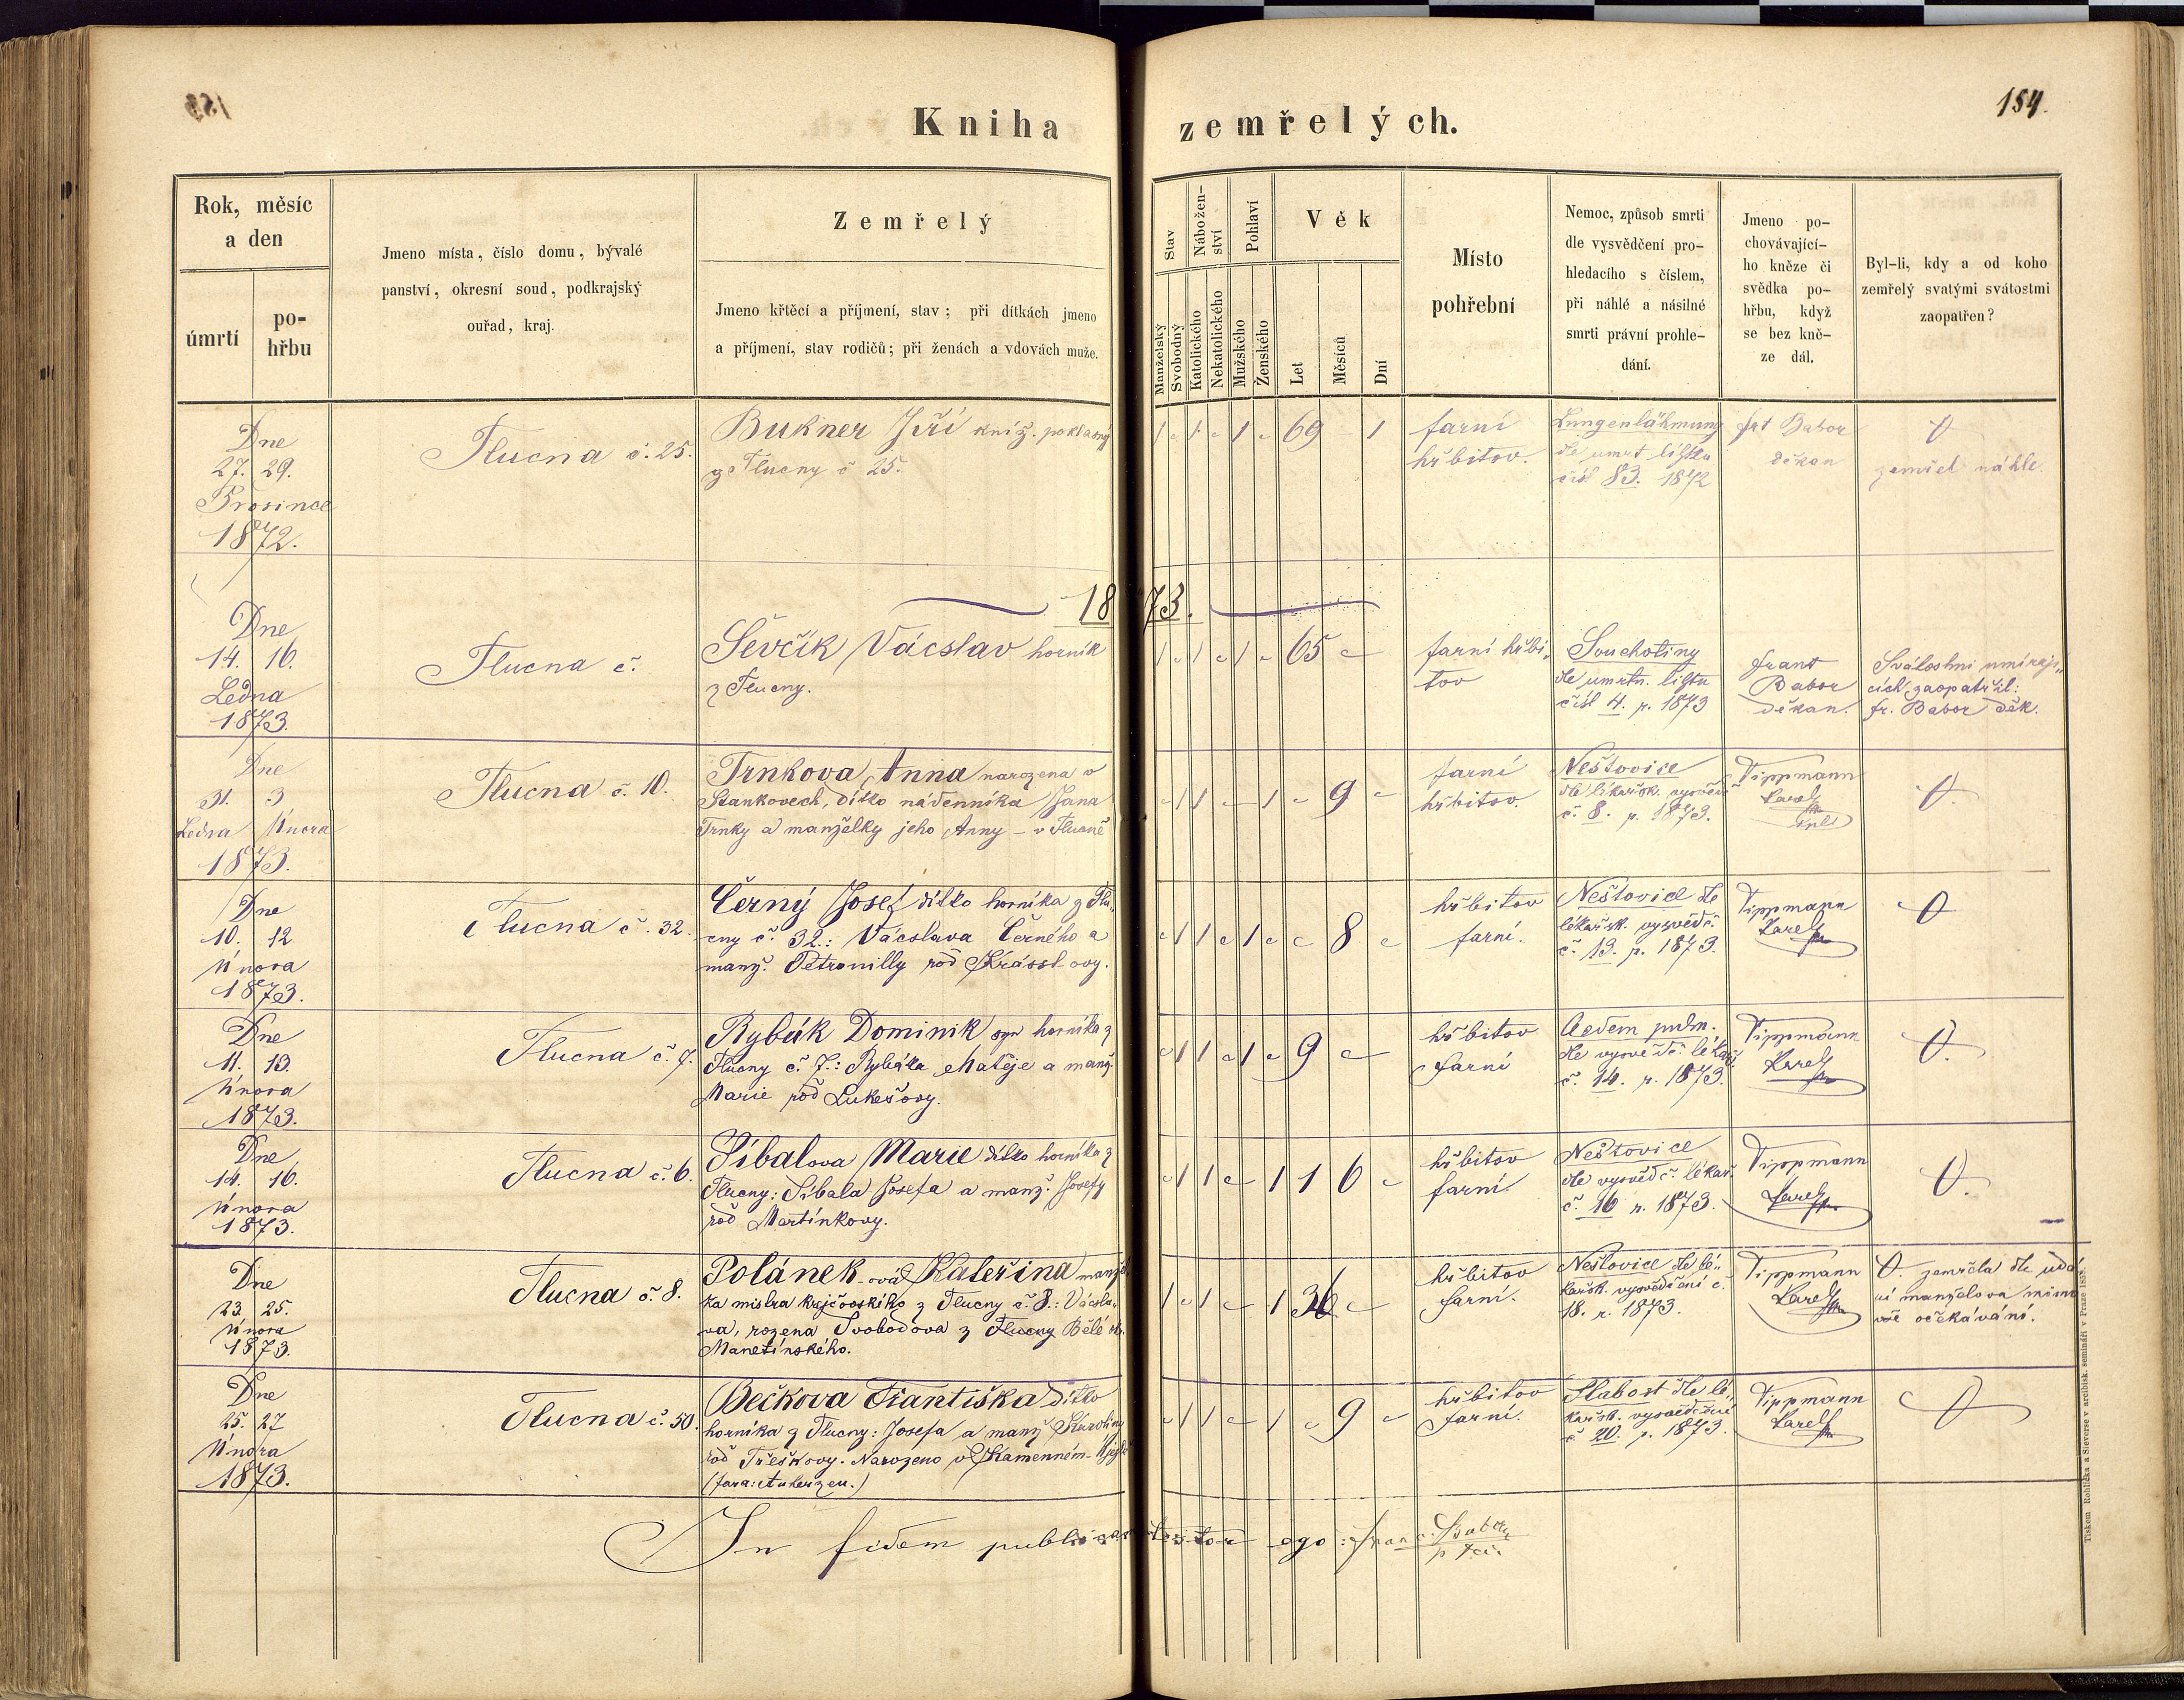 154.
Kniha zemřelých.
Rok, měsíc
a den
úmrtí
po-
hřbu
Jmeno místa, číslo domu, bývalé
panství, okresní soud, podkrajský
ouřad, kraj.
Zemřelý
Jmeno křtěcí a příjmení, stav; při dítkách jmeno
a příjmení, stav rodičů; při ženách a vdovách muže.
Stav
Manželský
Svobodný
Nábožen-
ství
Katolického
Nekatolického
Pohlaví
Mužského
Ženského
Věk
Let
Měsíců
Dní
Místo
pohřební
Nemoc, způsob smrti
dle vysvědčení pro-
hledacího s číslem,
při náhlé a násilné
smrti právní prohle-
dání.
Jmeno po-
chovávající-
ho kněze či
svědka po-
hřbu, když
se bez kně-
ze dál.
Byl-li, kdy a od koho
zemřelý svatými svátostmi
zaopatřen?
Dne
27. 29.
Prosince
1872.
Tlucna č. 25.
Bukner Jiří kníž. pokladný
z Tlucny č 25.
1 1 1 69 - 1
farní
hřbitov.
Lungenlähmung
dle umrt listku
čísl 83. 1872
frt Babor
děkan
0
zemřel náhle
1873.
Dne
14. 16.
Ledna
1873.
Tlucna č.
Ševčík Vácslav horník
z Tlucny.
1 1 1 65
farní hřbi„
tov
Souchotiny
dle umrtn. listu
čísl 4. p. 1873
frant
Babor
děkan.
Svátostmi umíraji„
cích zaopatřil:
fr. Babor děk.
Dne
31. 3
Ledna Února
1873.
Tlucna č. 10.
Trnkova Anna narozena v
Stankovech, dítko nádenníka Jana
Trnky a manželky jeho Anny - v Tlucně
1 1 1 9
farní
hřbitov.
Neštovice
dle lékařsk. vysvědč
č. 8. p. 1873.
Tippmann
Karel
0.
Dne
10. 12
Února
1873.
Tlucna č. 32.
Černý Josef dítko horníka z Tlu„
cny č. 32.: Vácslava Černého a
manž. Petronilly rod Krássl-ovy.
1 1 1 8
hřbitov
farní.
Neštovice dle
lékařsk. vysvědč.
č. 13. p. 1873.
Tippmann
Karel
0
Dne
11. 13.
Února
1873.
Tlucna č. 7.
Rybák Dominik syn horníka z
Tlucny č. 7.: Rybáka Matěje a manž.
Marie rod Lukešovy.
1 1 1 9
hřbitov
farní
Oedem pulm.
dle vysvědč. lékař.
č. 14. p. 1873.
Tippmann
Karel
0.
Dne
14. 16.
Února
1873.
Tlucna č. 6.
Síbalova Marie dítko horníka z
Tlucny: Síbala Josefa a manž. Josefy
rod Martínkovy.
1 1 1 1 6
hřbitov
farní.
Neštovice
dle vysvědč. lékař.
č. 16 p. 1873.
Tippmann
Karel
0.
Dne
23. 25.
Února
1873.
Tlucna č. 8.
Polánek-ová Kateřina manžel
ka mistra krejčovského z Tlucny č. 8.: Vácsla„
va, rozena Svobodova z Tlucny Bělé
Manetínského.
1 1 1 36
hřbitov
farní.
Neštovice dle lé„
kařsk. vysvědčení č.
18. r. 1873.
Tippmann
Karel
0. zemřela dle udá
ní manžela mimo
vše očekávání.
Dne
25. 27
Února
1873.
Tlucna č. 50.
Bečkova Františka dítko
horníka z Tlucny: Josefa a manž Karolíny
rod Třeškovy. Narozeno v Kamenném-Újezdě
(fara: Auherzen.)
1 1 1 9
hřbitov
farní.
Slabost dle lé„
kařsk. vysvědčení
č 20. p. 1873.
Tippmann
Karel
0
In fidem publicam testor ego: Franc. Babor
Tiskem Rohlíčka a Sieverse v arcibisk. semináři v Praze 1857.